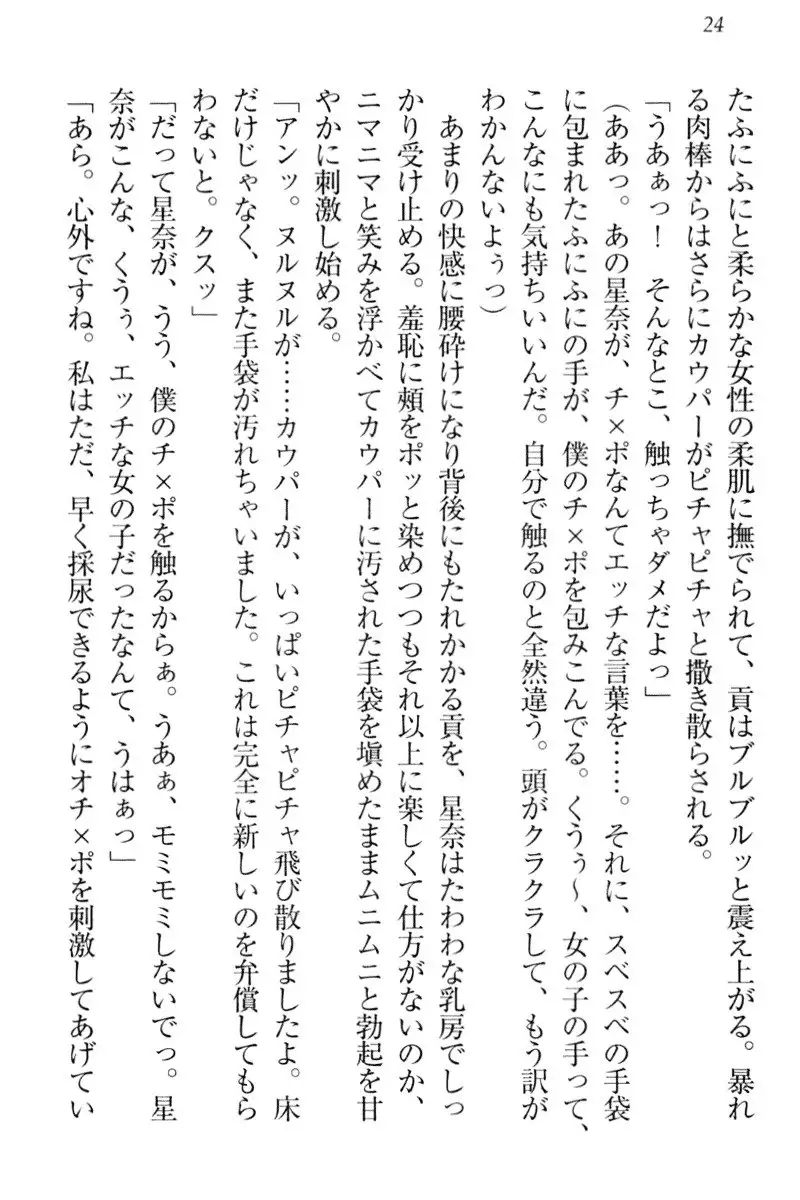 24
たふにふにと柔らかな女性の柔肌に撫でられて、貢はブルブルッと震え上がる。暴れ
る肉棒からはさらにカウパーがピチャピチャと撒き散らされる。
「うあぁっ！　そんなとこ、触っちゃダメだよっ」
（ああっ。あの星奈が、チ×ポなんてエッチな言葉を……。それに、スベスベの手袋
に包まれたふにふにの手が、僕のチ×ポを包みこんでる。くうぅ～、女の子の手って、
こんなにも気持ちいいんだ。自分で触るのと全然違う。頭がクラクラして、もう訳が
わかんないよぅっ）
　あまりの快感に腰砕けになり背後にもたれかかる貢を、星奈はたわわな乳房でしっ
かり受け止める。羞恥に頰をポッと染めつつもそれ以上に楽しくて仕方がないのか、
ニマニマと笑みを浮かべてカウパーに汚された手袋を塡めたままムニムニと勃起を甘
やかに刺激し始める。
「アンッ。ヌルヌルが……カウパーが、いっぱいピチャピチャ飛び散りましたよ。床
だけじゃなく、また手袋が汚れちゃいました。これは完全に新しいのを弁償してもら
わないと。クスッ」
「だって星奈が、うう、僕のチ×ポを触るからぁ。うあぁ、モミモミしないでっ。星
奈がこんな、くうぅ、エッチな女の子だったなんて、うはぁっ」
「あら。心外ですね。私はただ、早く採尿できるようにオチ×ポを刺激してあげてい